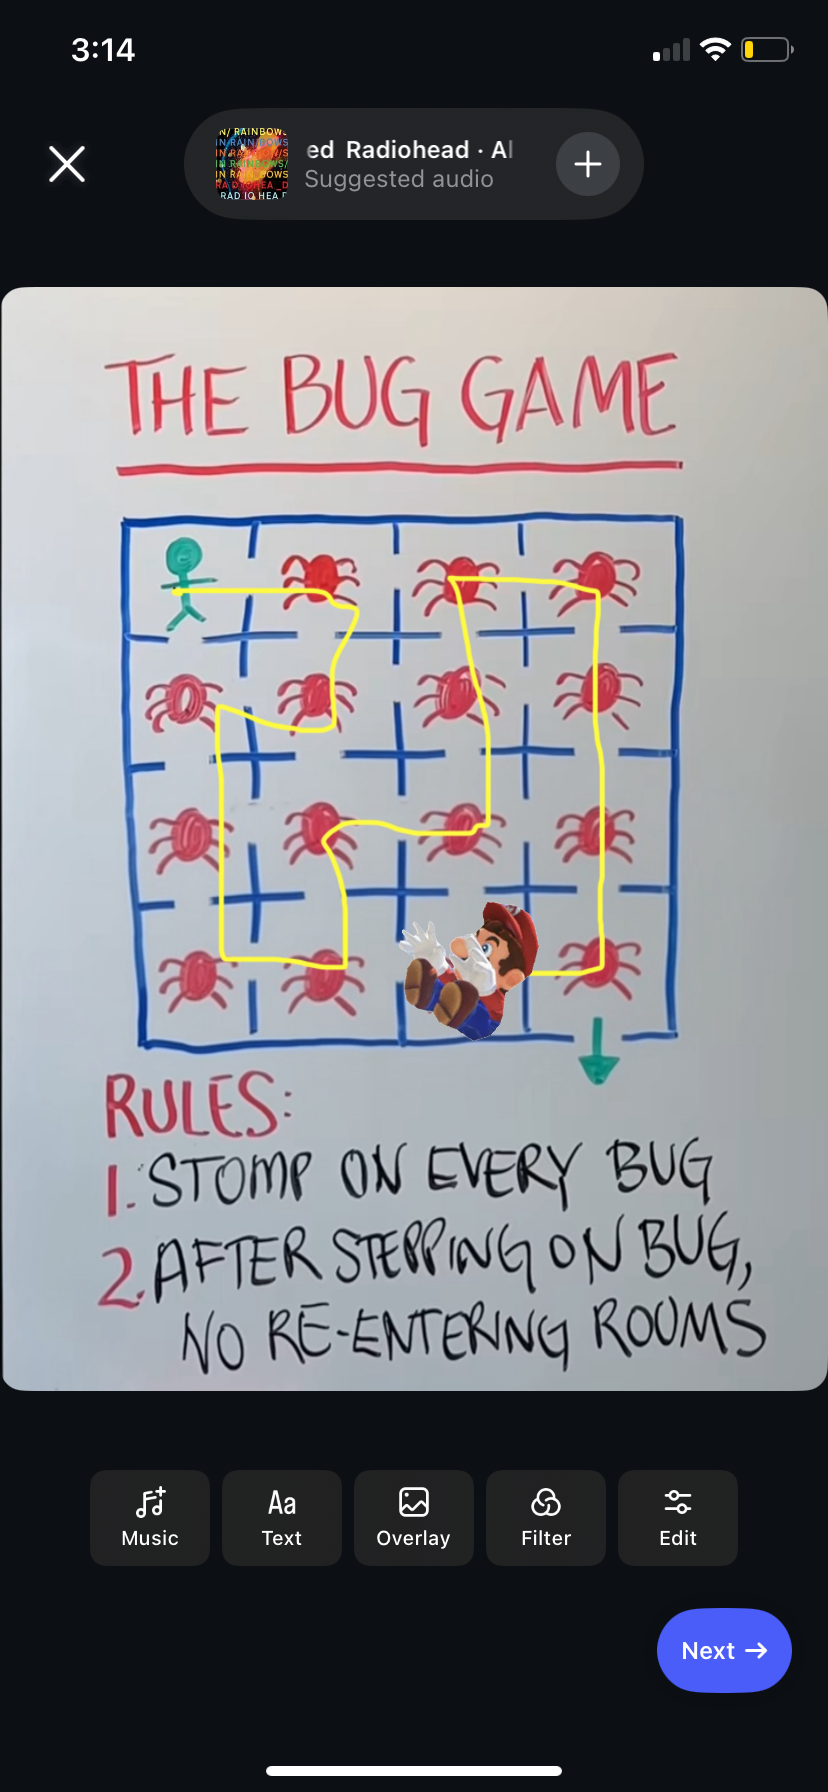 3:14
ed Radiohead · Al
Suggested audio
THE BUG GAME
RULES:
1. STOMP ON EVERY BUG
2. AFTER STEPPING ON BUG,
NO RE-ENTERING ROOMS
Music
Text
Overlay
Filter
Edit
Next